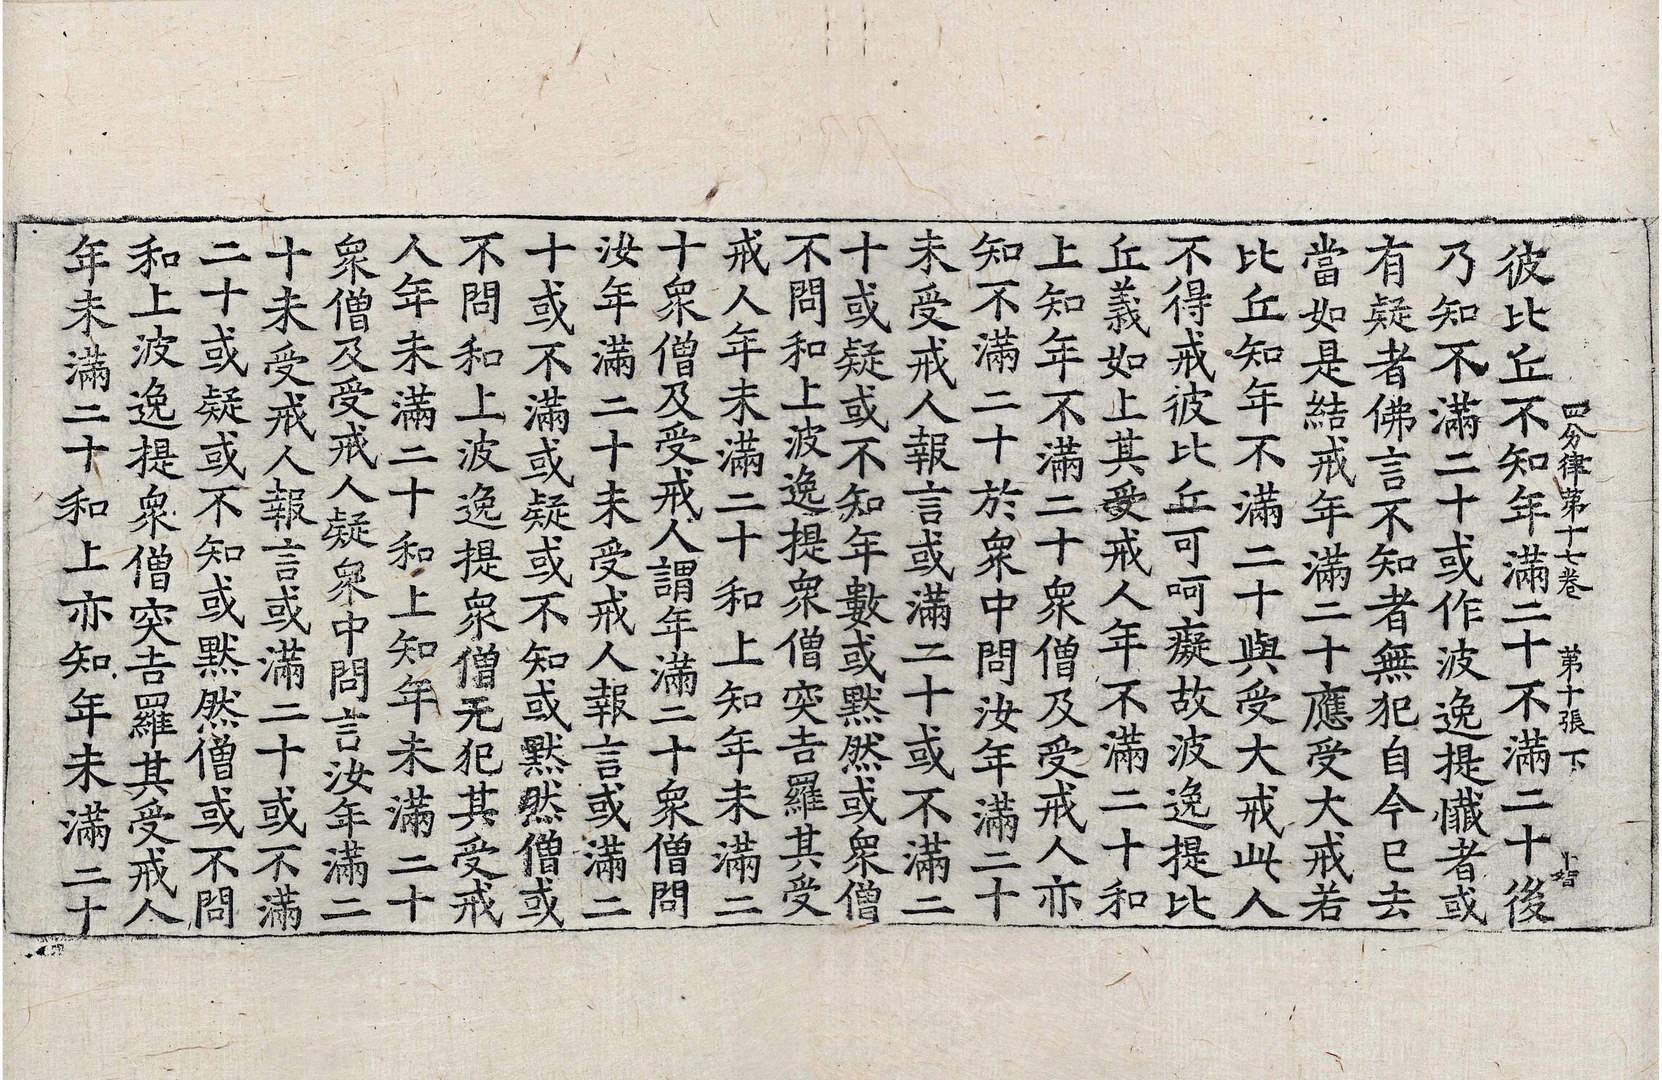 四分律第十七卷 第十張 下
彼比丘不知年滿二十不滿二十後
乃知不滿二十或作波逸提懺者或
有疑者佛言不知者無犯自今已去
當如是結戒年滿二十應受大戒若
比丘知年不滿二十與受大戒此人
不得戒彼比丘可呵癡故波逸提比
丘義如上其受戒人年不滿二十和
上知年不滿二十衆僧及受戒人亦
知不滿二十於衆中問汝年滿二十
未受戒人報言或滿二十或不滿二
十或疑或不知年數或黙然或衆僧
不問和上波逸提衆僧突吉羅其受
戒人年未滿二十和上知年未滿二
十衆僧及受戒人謂年滿二十衆僧問
汝年滿二十未受戒人報言或滿二
十或不滿或疑或不知或黙然僧或
不問和上波逸提衆僧无犯其受戒
人年未滿二十和上知年未滿二十
衆僧及受戒人疑衆中問言汝年滿二
十未受戒人報言或滿二十或不滿
二十或疑或不知或黙然僧或不問
和上波逸提衆僧突吉羅其受戒人
年未滿二十和上亦知年未滿二十